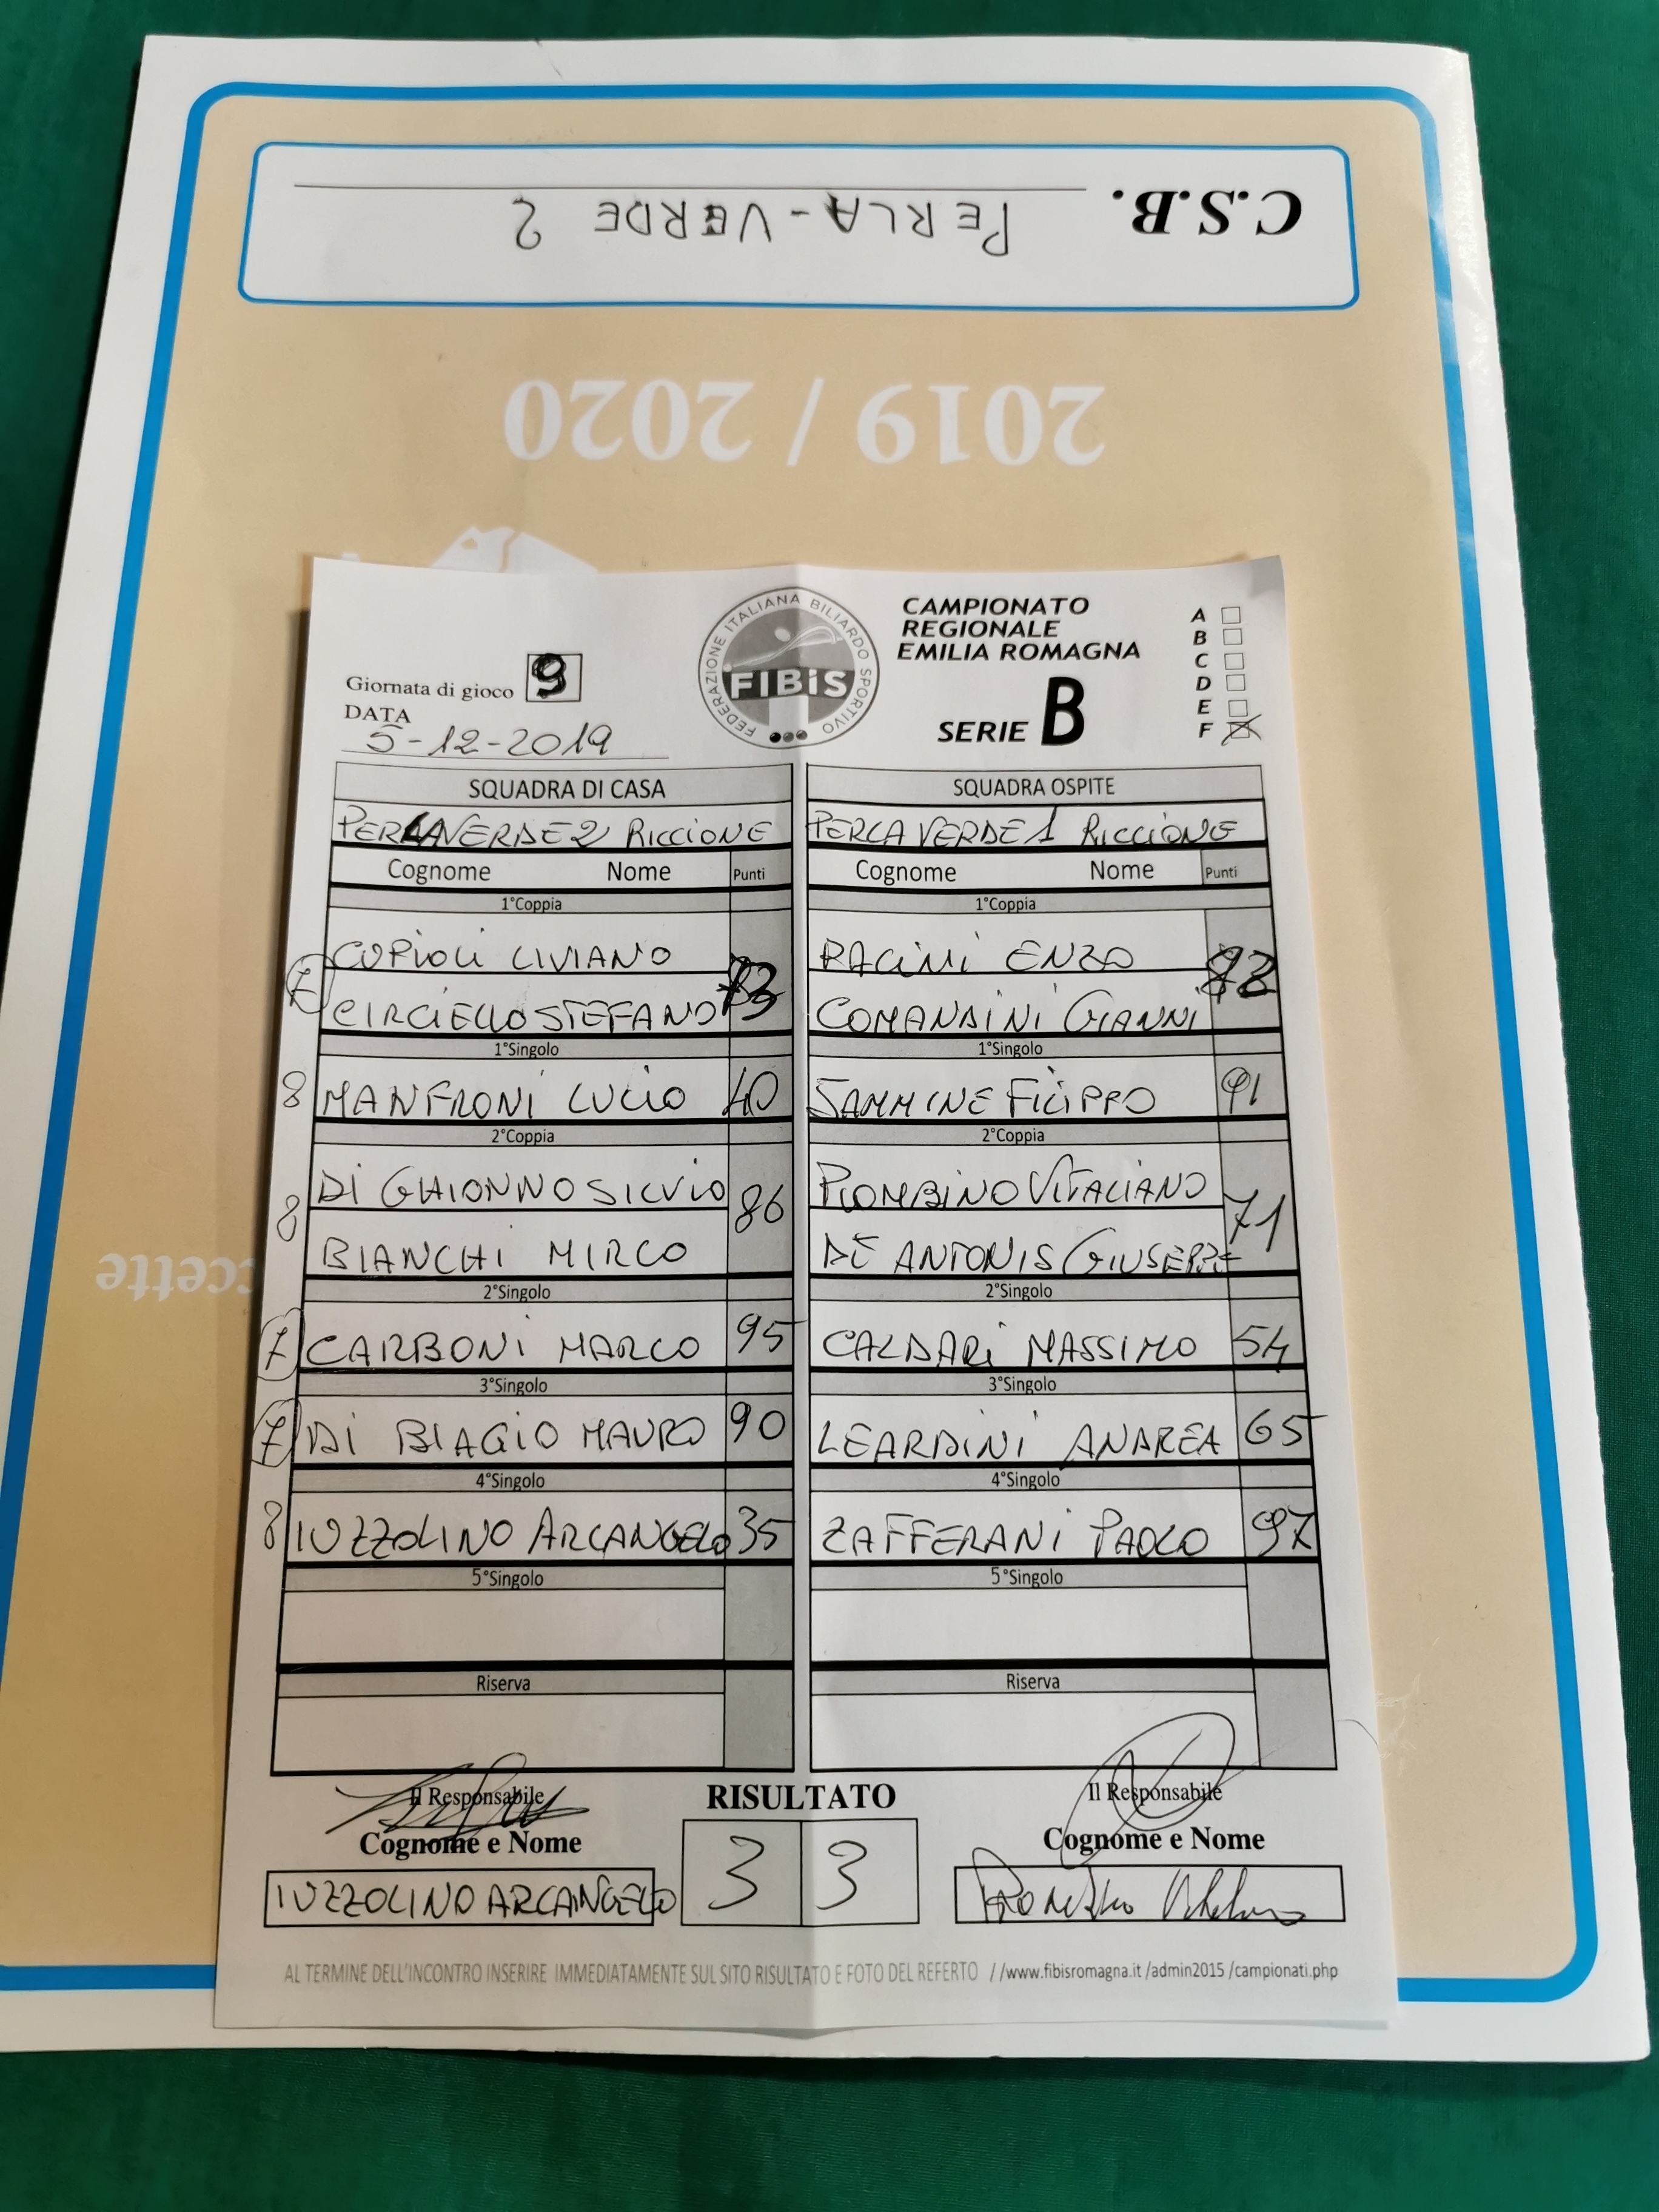 C.S.B. PERLA-VERDE 2
2019 / 2020
ccette
FEDERAZIONE ITALIANA BILIARDO SPORTIVO
FIBiS
CAMPIONATO
REGIONALE
EMILIA ROMAGNA
SERIE B
A
B
C
D
E
F X
Giornata di gioco 9
DATA
5-12-2019
SQUADRA DI CASA
PERLAVERDE 2 RICCIONE
Cognome Nome Punti
1°Coppia
COPIOLI LIVIANO
7 CIRCIELLO STEFANO
1°Singolo
8 MANFRONI LUCIO 40
2°Coppia
DI GHIONNO SILVIO
8 86
BIANCHI MIRCO
2°Singolo
7 CARBONI MARCO 95
3°Singolo
7 DI BIAGIO MAURO 90
4°Singolo
8 IUZZOLINO ARCANGELO 35
5°Singolo
Riserva
SQUADRA OSPITE
PERLA VERDE 1 RICCIONE
Cognome Nome Punti
1°Coppia
RACINI ENZO
COMANDINI GIANNI
1°Singolo
SAMMINE FILIPPO 91
2°Coppia
PIOMBINO VITALIANO
71
DE ANTONIS GIUSEPPE
2°Singolo
CALDARI MASSIMO 54
3°Singolo
LEARDINI ANDREA 65
4°Singolo
ZAFFERANI PAOLO 97
5°Singolo
Riserva
Il Responsabile
Cognome e Nome
IUZZOLINO ARCANGELO
RISULTATO
3 3
Il Responsabile
Cognome e Nome
AL TERMINE DELL'INCONTRO INSERIRE IMMEDIATAMENTE SUL SITO RISULTATO E FOTO DEL REFERTO //www.fibisromagna.it /admin2015 /campionati.php